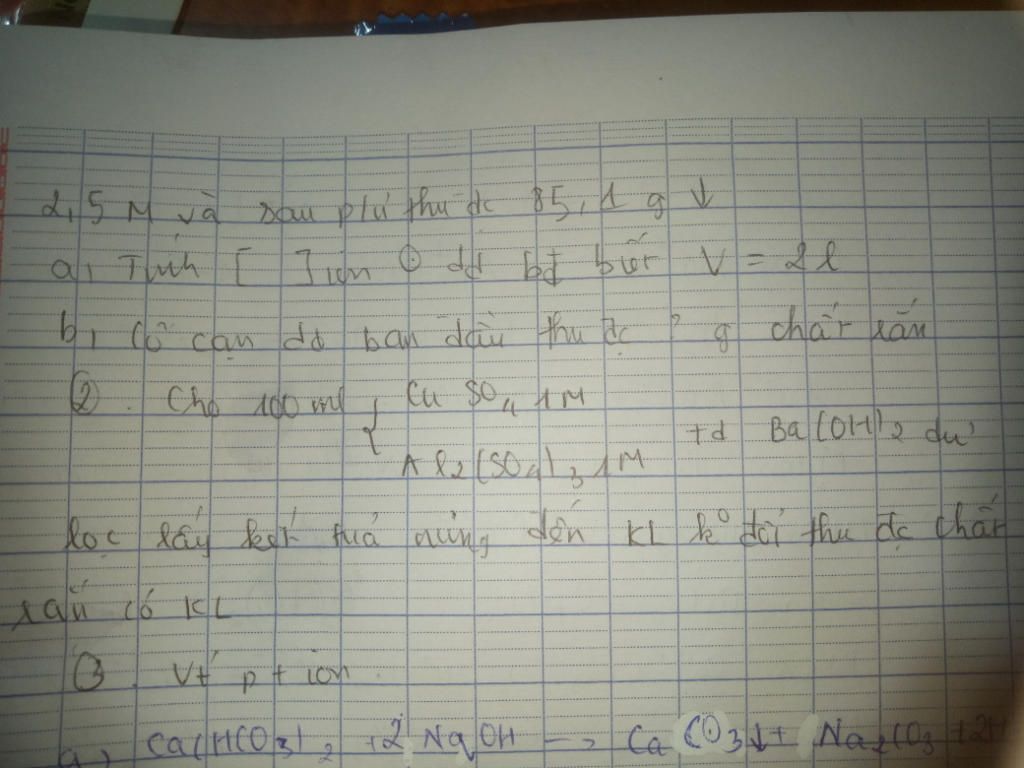 2,5 M và sau pứ thu đc 85,1 g ↓
a, Tính [ ] ion ⊕ dd bđ biết V = 2 l
b, Cô cạn dd ban đầu thu đc ? g chất rắn
②. Cho 100 ml { Cu SO4 1M
Al2(SO4)3 1M + d Ba(OH)2 dư
lọc lấy kết tuả nung đến KL k° đổi thu đc chất
rắn có KL
③. Vt p t ion
a, Ca(HCO3)2 + 2 NaOH → CaCO3↓ + Na2CO3 + 2H